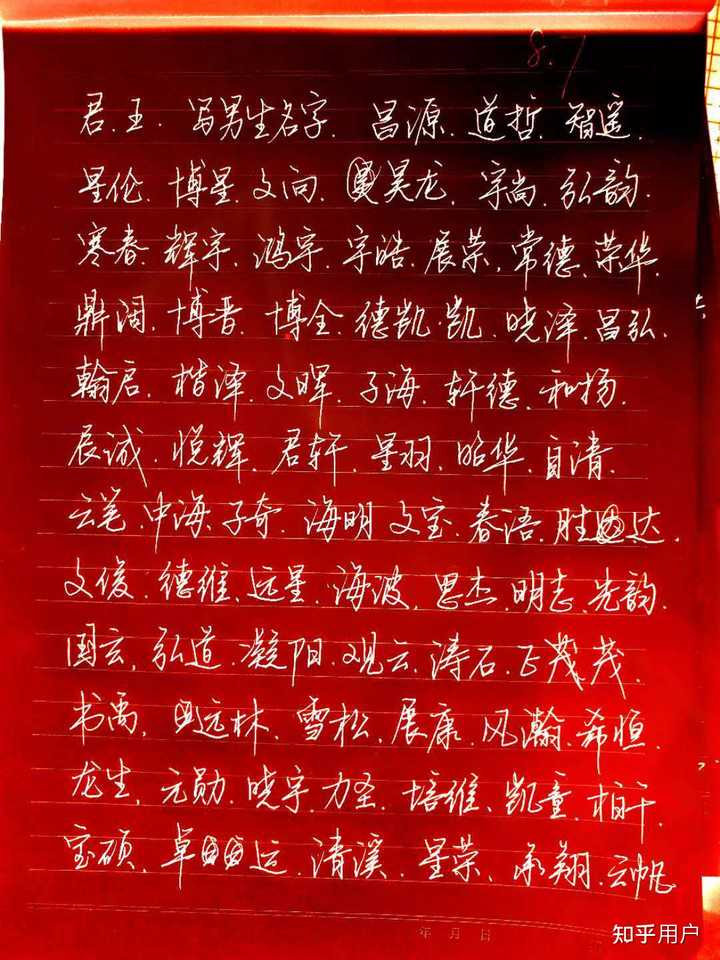 8.7
君.王.写男生名字.昌源.道哲.智遥.
星伦.博星.文向.昊龙.宇尚.弘韵.
寒春.辉宇.鸿宇.宇皓.展荣.常德.荣华.
鼎阔.博晋.博全.德凯.凯.晓泽.昌弘.
翰启.楷泽.文晖.子海.轩德.和扬.
辰诚.悦辉.君轩.星羽.昭华.自清.
云笔.中海.子奇.海明.文宝.春语.胜达.
文俊.德维.远星.海波.思杰.明志.先韵.
国云.弘道.凝阳.观云.涛石.正茂茂.
书禹.远林.雪松.展康.风瀚.希恒.
龙生.元勋.晓宇.力圣.培维.凯童.柏千.
宝硕.卓运.清溪.星荣.承翔.云帆
年 月 日
知乎用户